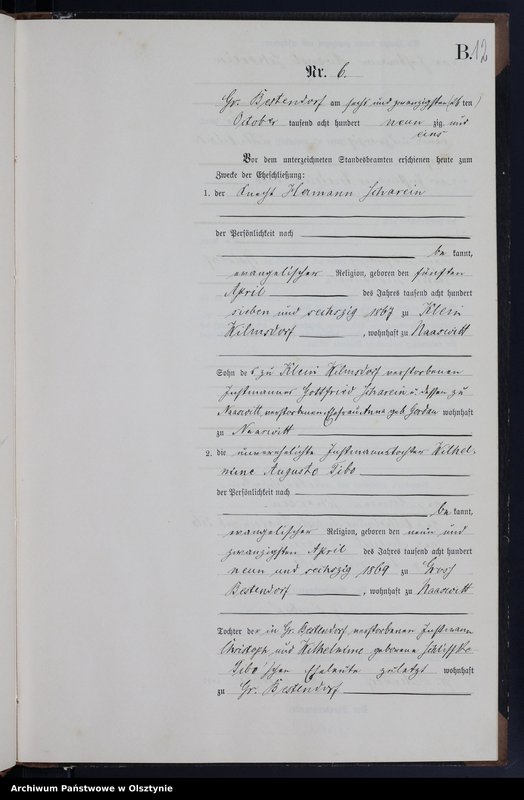 B. 12
Nr. 6.
Gr. Bestendorf am sechs und zwanzigsten (26 ten)
October tausend acht hundert neun zig und
eins
Vor dem unterzeichneten Standesbeamten erschienen heute zum
Zwecke der Eheschließung:
1. der Knecht Hermann Scharein
der Persönlichkeit nach
be kannt,
evangelischer Religion, geboren den fünften
April des Jahres tausend acht hundert
sieben und sechszig 1867 zu Klein
Wilmsdorf, wohnhaft zu Naaswitt
Sohn des zu Klein Wilmsdorf verstorbenen
Instmannes Gottfried Scharein u. dessen zu
Naaswitt verstorbenen Ehefrau Anna geb. wohnhaft
zu Naaswitt
2. die unverehelichte Instmannstochter Wilhel-
mine Auguste Tibo
der Persönlichkeit nach
be kannt,
evangelischer Religion, geboren den neun und
zwanzigsten April des Jahres tausend acht hundert
neun und sechszig 1869 zu Groß
Bestendorf, wohnhaft zu Naaswitt
Tochter der in Gr. Bestendorf verstorbenen Instmann
Christoph und Wilhelmine geborene
Tibo'schen Eheleute zuletzt wohnhaft
zu Gr. Bestendorf
Archiwum Państwowe w Olsztynie